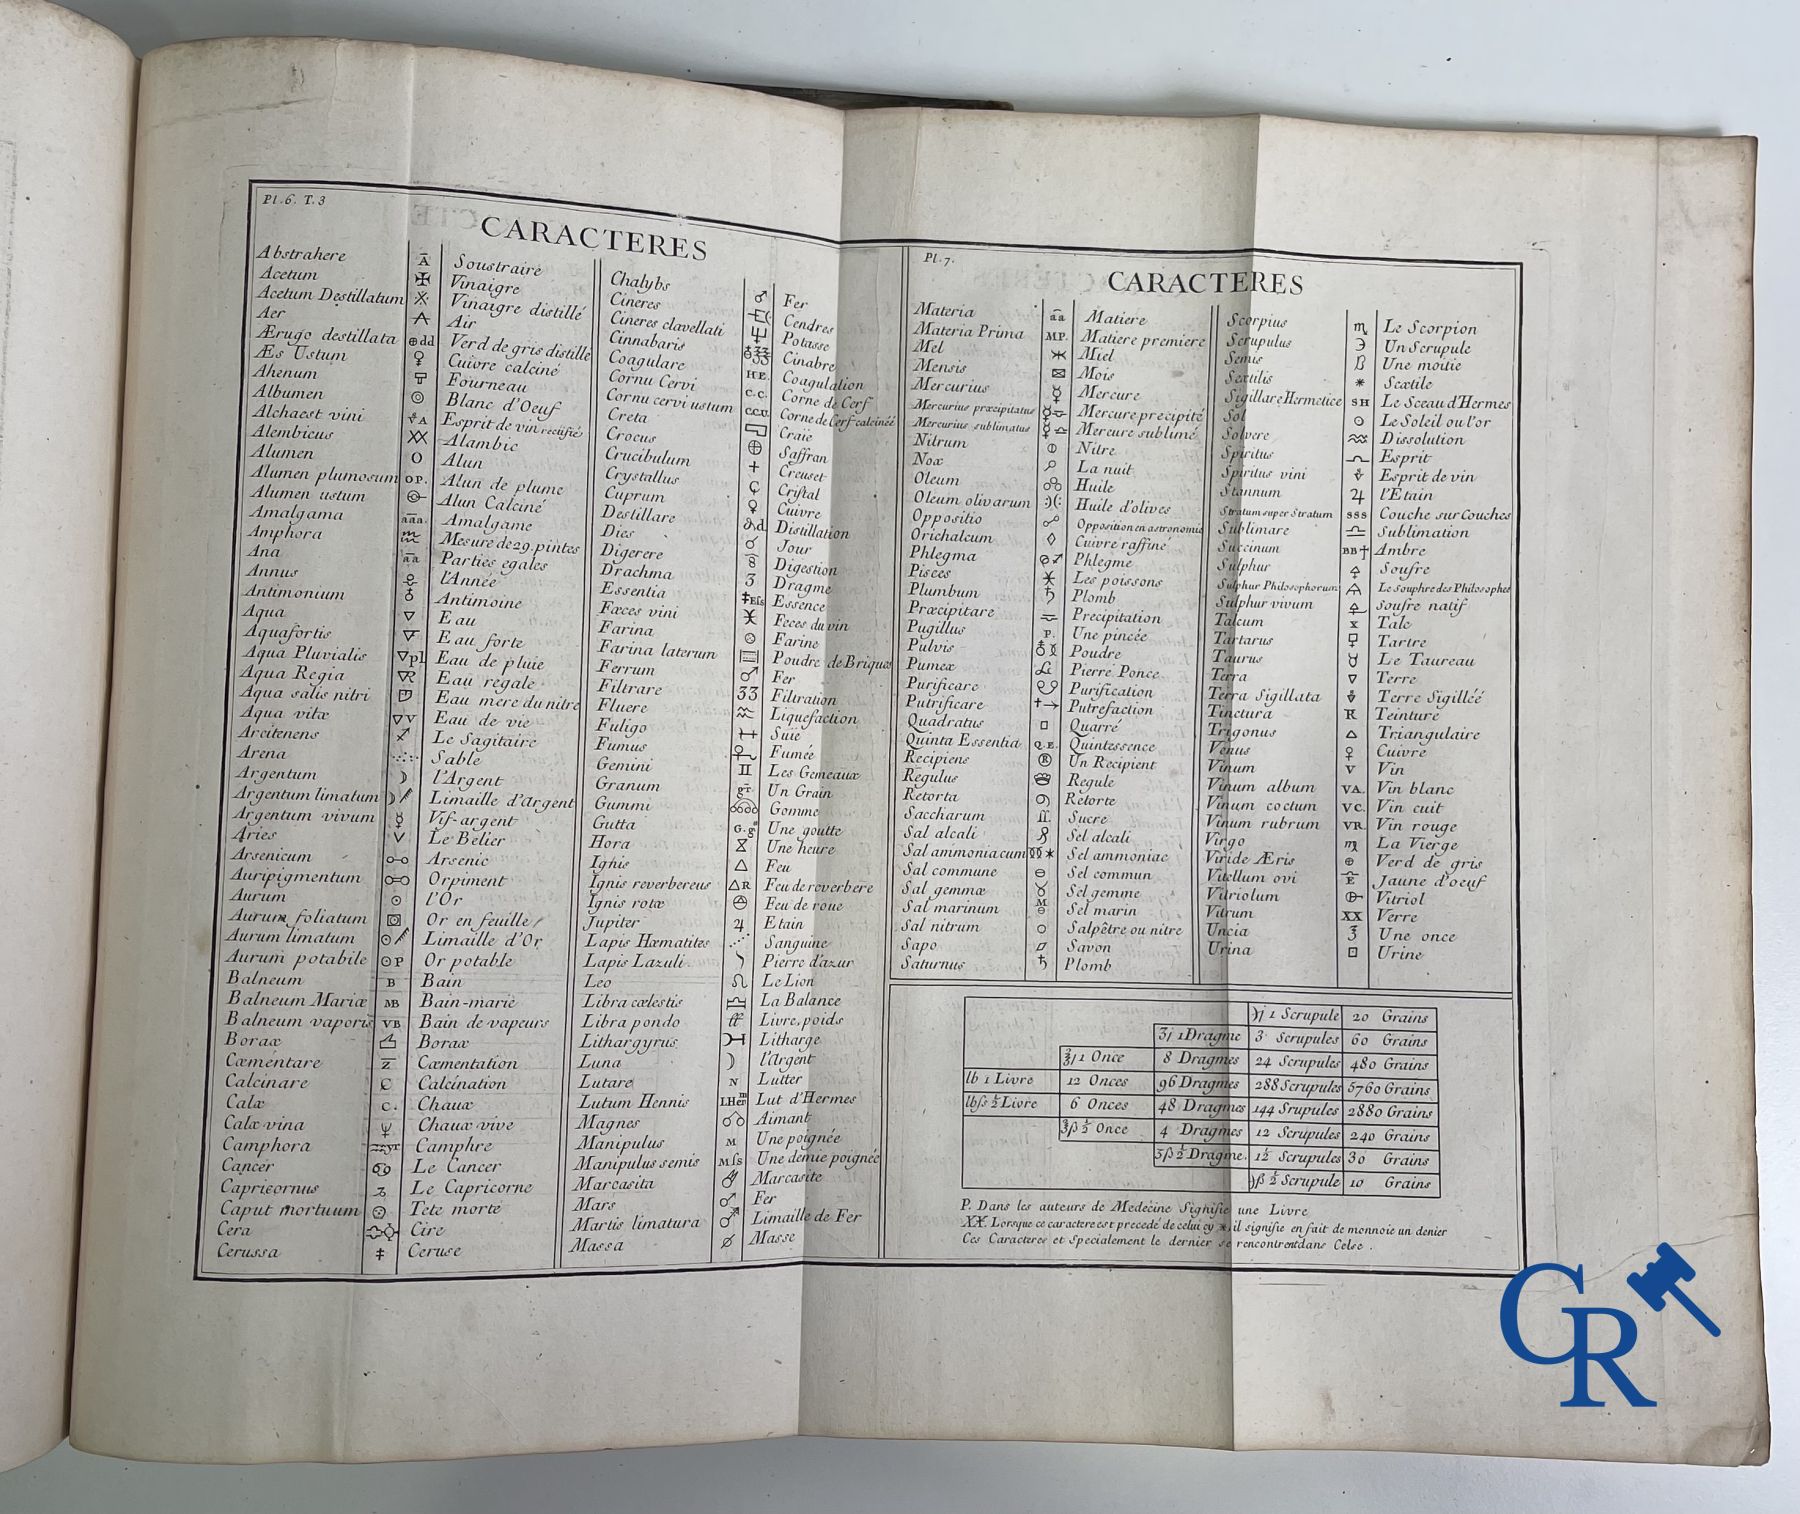 Pl. 6. T. 3
CARACTERES
Abstrahere Ā Soustraire
Acetum ✠ Vinaigre
Acetum Destillatum Vinaigre distillé
Aer Air
Ærugo destillata ⊕dd Verd de gris distillé
Æs Ustum ♀ Cuivre calciné
Ahenum Fourneau
Albumen ⊙ Blanc d'Oeuf
Alchaest vini Esprit de vin rectifié
Alembicus XX Alambic
Alumen O Alun
Alumen plumosum OP. Alun de plume
Alumen ustum Alun Calciné
Amalgama aaa. Amalgame
Amphora Mesure de 29. pintes
Ana aa Parties egales
Annus l'Année
Antimonium ♁ Antimoine
Aqua ▽ Eau
Aquafortis Eau forte
Aqua Pluvialis ▽pl Eau de pluie
Aqua Regia ▽R Eau regale
Aqua salis nitri Eau mere du nitre
Aqua vitæ ▽V Eau de vie
Arcitenens ♐ Le Sagitaire
Arena Sable
Argentum ☽ l'Argent
Argentum limatum Limaille d'Argent
Argentum vivum ☿ Vif-argent
Aries V Le Belier
Arsenicum o-o Arsenic
Auripigmentum Orpiment
Aurum ⊙ l'Or
Aurum foliatum Or en feuille
Aurum limatum Limaille d'Or
Aurum potabile ⊙P Or potable
Balneum B Bain
Balneum Mariæ MB Bain-marie
Balneum vaporis VB Bain de vapeurs
Borax Borax
Cæmentare Z Cæmentation
Calcinare C Calcination
Calx C. Chaux
Calx vina Chaux vive
Camphora Camphre
Cancer ♋ Le Cancer
Capricornus ♑ Le Capricorne
Caput mortuum Tete morte
Cera Cire
Cerussa ‡ Ceruse
Chalybs ♂ Fer
Cineres Cendres
Cineres clavellati Potasse
Cinnabaris Cinabre
Coagulare HE. Coagulation
Cornu Cervi C.C. Corne de Cerf
Cornu cervi ustum C.C.U. Corne de Cerf calcinée
Creta Craie
Crocus ⊕ Saffran
Crucibulum + Creuset
Crystallus Cristal
Cuprum ♀ Cuivre
Destillare Distillation
Dies Jour
Digerere Digestion
Drachma 3 Dragme
Essentia ‡Ess Essence
Fœces vini Feces du vin
Farina Farine
Farina laterum Poudre de Briques
Ferrum ♂ Fer
Filtrare 33 Filtration
Fluere Liquefaction
Fuligo Suie
Fumus Fumée
Gemini ♊ Les Gemeaux
Granum gr Un Grain
Gummi Gomme
Gutta G. Une goutte
Hora Une heure
Ignis △ Feu
Ignis reverbereus △R Feu de reverbere
Ignis rotæ Feu de roue
Jupiter ♃ Etain
Lapis Hæmatites Sanguine
Lapis Lazuli Pierre d'azur
Leo ♌ Le Lion
Libra cælestis ♎ La Balance
Libra pondo Livre, poids
Lithargyrus Litharge
Luna ☽ l'Argent
Lutare N Lutter
Lutum Hennis LHerm Lut d'Hermes
Magnes Aimant
Manipulus M Une poignée
Manipulus semis Mſs Une demie poignée
Marcasita Marcasite
Mars ♂ Fer
Martis limatura Limaille de Fer
Massa Masse
Pl. 7.
CARACTERES
Materia aa Matiere
Materia Prima MP. Matiere premiere
Mel Miel
Mensis Mois
Mercurius ☿ Mercure
Mercurius præcipitatus Mercure precipité
Mercurius sublimatus Mercure sublimé
Nitrum Nitre
Nox La nuit
Oleum Huile
Oleum olivarum Huile d'olives
Oppositio ☍ Opposition en astronomie
Orichalcum Cuivre raffiné
Phlegma Phlegme
Pisces Les poissons
Plumbum ♄ Plomb
Præcipitare Precipitation
Pugillus P. Une pincée
Pulvis Poudre
Pumex Pierre Ponce
Purificare Purification
Putrificare Putrefaction
Quadratus □ Quarré
Quinta Essentia Q.E. Quintessence
Recipiens Ⓡ Un Recipient
Regulus Regule
Retorta Retorte
Saccharum Sucre
Sal alcali Sel alcali
Sal ammoniacum Sel ammoniac
Sal commune ⊖ Sel commun
Sal gemmæ Sel gemme
Sal marinum Sel marin
Sal nitrum Salpêtre ou nitre
Sapo Savon
Saturnus ♄ Plomb
Scorpius ♏ Le Scorpion
Scrupulus Un Scrupule
Semis Une moitie
Sextilis * Sextile
Sigillare Hermetice SH Le Sceau d'Hermes
Sol Le Soleil ou l'or
Solvere Dissolution
Spiritus Esprit
Spiritus vini Esprit de vin
Stannum ♃ l'Etain
Stratum super Stratum SSS Couche sur Couches
Sublimare Sublimation
Succinum BB† Ambre
Sulphur Soufre
Sulphur Philosophorum Le souphre des Philosophes
Sulphur vivum soufre natif
Talcum X Talc
Tartarus Tartre
Taurus ♉ Le Taureau
Terra ▽ Terre
Terra Sigillata Terre Sigilléé
Tinctura R Teinture
Trigonus △ Triangulaire
Venus ♀ Cuivre
Vinum V Vin
Vinum album VA. Vin blanc
Vinum coctum VC. Vin cuit
Vinum rubrum VR. Vin rouge
Virgo ♍ La Vierge
Viride Æris ⊕ Verd de gris
Vitellum ovi Jaune d'oeuf
Vitriolum Vitriol
Vitrum XX Verre
Uncia Une once
Urina Urine
1 Scrupule 20 Grains
1 Dragme 3 Scrupules 60 Grains
1 Once 8 Dragmes 24 Scrupules 480 Grains
lb 1 Livre 12 Onces 96 Dragmes 288 Scrupules 5760 Grains
lbſs ½ Livre 6 Onces 48 Dragmes 144 Srupules 2880 Grains
½ Once 4 Dragmes 12 Scrupules 240 Grains
½ Dragme. 1½ Scrupules 30 Grains
½ Scrupule 10 Grains
P. Dans les auteurs de Medecine Signifie une Livre
XX Lorsque ce caractere est precedé de celui cy *, il signifie en fait de monnoie un denier
Ces Caracteres et Specialement le dernier se rencontrent dans Celse.
GR